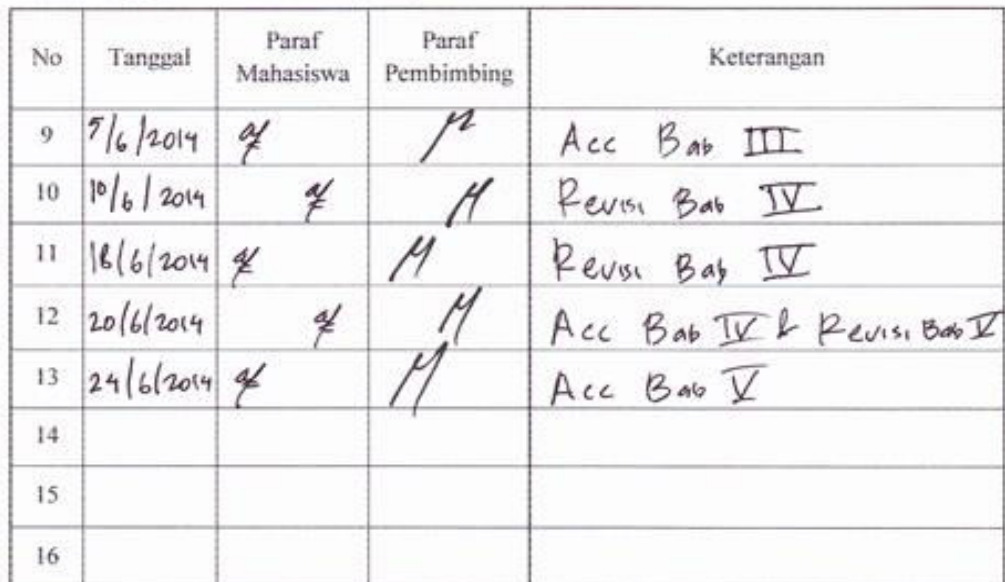 No Tanggal Paraf Mahasiswa Paraf Pembimbing Keterangan
9 5/6/2014 Acc Bab III
10 10/6/2014 Revisi Bab IV
11 18/6/2014 Revisi Bab IV
12 20/6/2014 Acc Bab IV & Revisi Bab V
13 24/6/2014 Acc Bab V
14
15
16